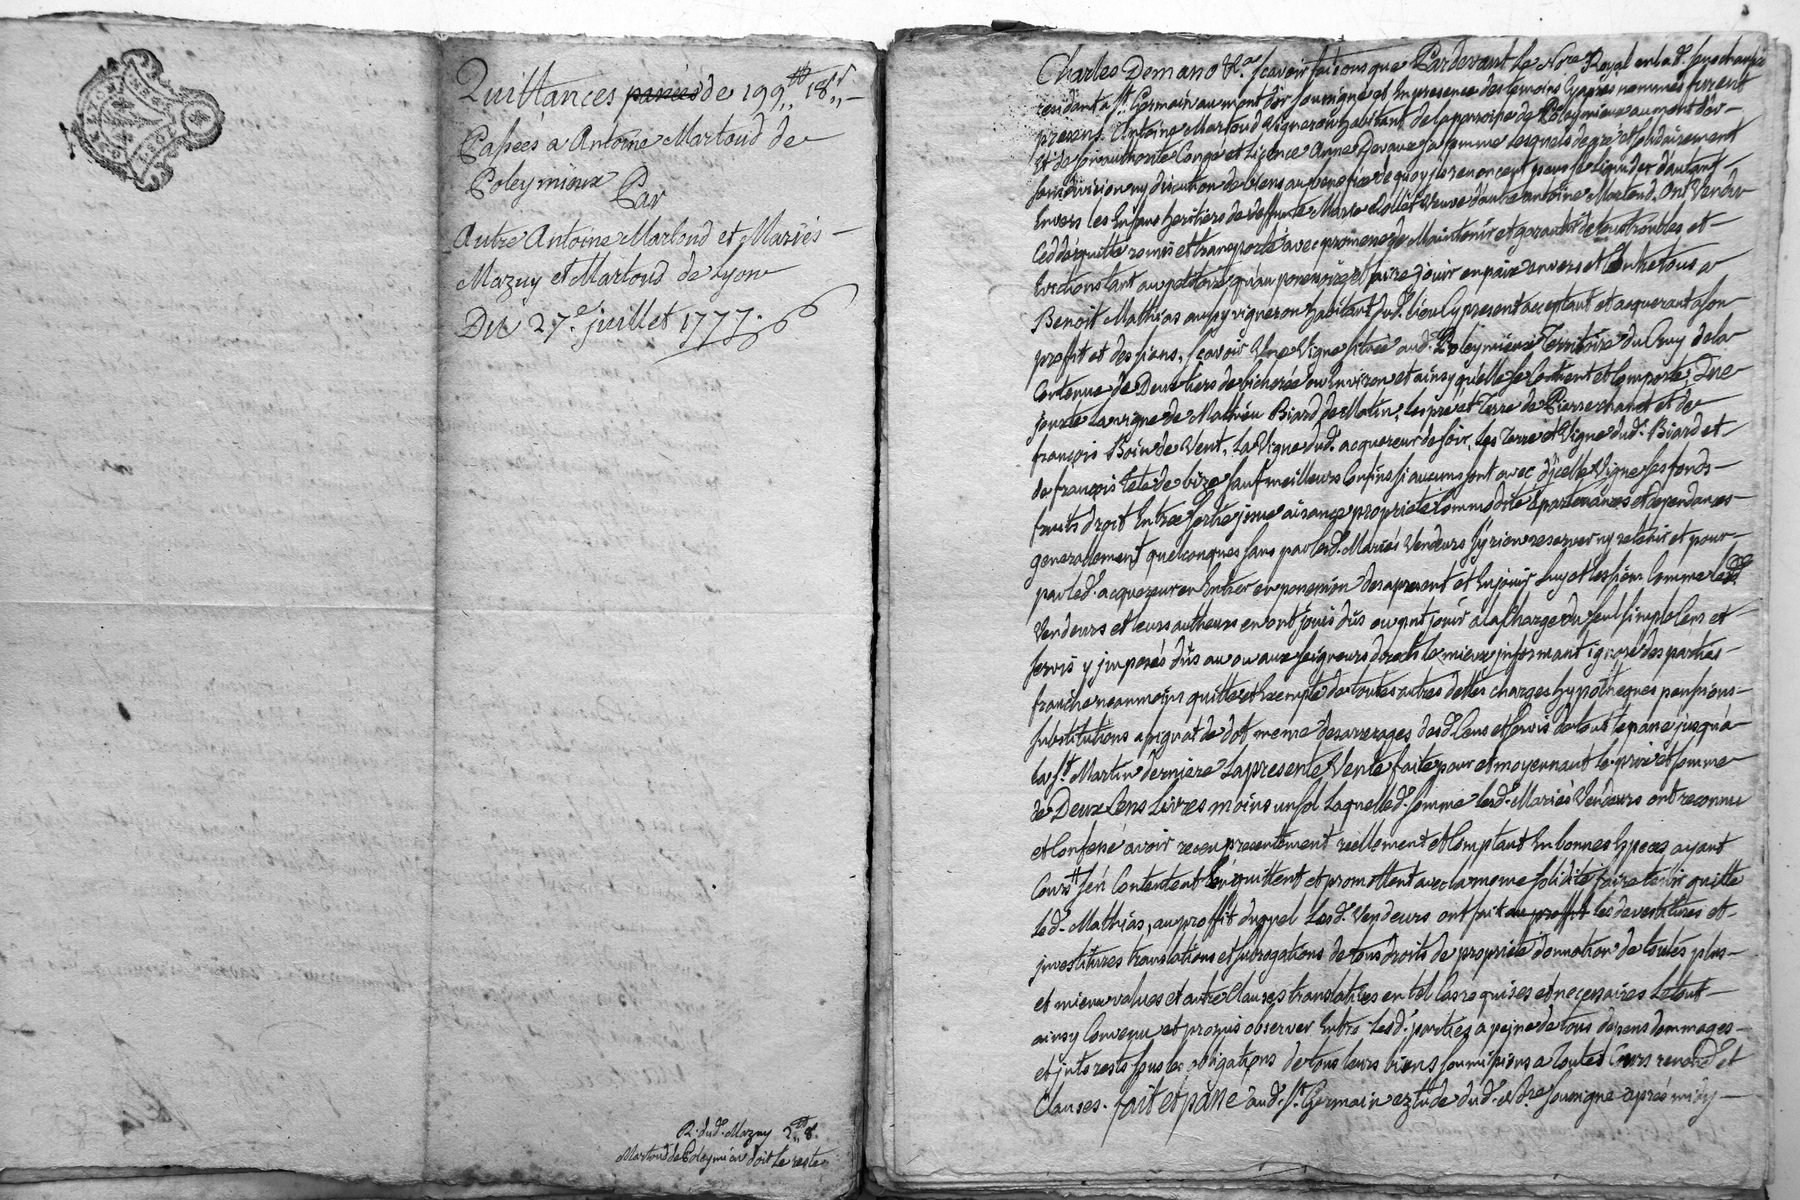 Quittances passées de 199.# 18.s —
Passées a Antoine Martoud de
Poleymieux
Par
Autre Antoine Martoud et Mariés —
Mazuy et Martoud de Lyon
Du 27.e juillet 1777.
R. dud. Mazuy 2.# 8.
Martoud de Poleymieux doit le reste
Charles Demano &.a scavoir faisons que Pardevant le No.re Royal en lad. senechaussée
residant a S.t Germain au mont d'or soussigné et En presence des temoins Cyaprès nommés furent
presens Antoine Martoud Vigneron habitant de la paroisse de Poleymieux au mont d'or —
et de son authorité Congé et Licence Anne Devaux sa femme Lesquels de gré et solidairement
sans division ny discution de biens au benefice de quoy ils renoncent pour se liquider d'autant
Envers les Enfans heritiers de deffunte Marie Veuve d'autre antoine Martoud, Ont Vendu
Ceddé quitté remis et transporté avec promesse de Maintenir et garantir de tous troubles et —
Evictions tant au petitoire qu'au possessoire et faire jouir en paix envers et Contre tous a
Benoit Mathias aussy vigneron habitant dud. lieu Cy present acceptant et acquerant a son
proffit et des siens, scavoir Une Vigne située aud. Poleymieux Territoire du de la
Contenue de Deux tiers de bicherée ou Environ et ainsy qu'elle se Contient et Comporte, Que
jouxte la vigne de Mathieu Biard de Matin, les pré et Terre de Pierre et de
françois de Vent, La Vigne dud. acquereur de soir, Les Terre et Vigne dud. Biard et —
de françois de bize sauf meilleurs Confins si aucuns sont avec d'ycelle Vigne ses fonds —
fruits droit Entrée sortie issue aisance propriété Commodité apartenances et dependances —
generallement quelconques sans par lesd. Mariés Vendeurs s'y rien reserver ny retenir et pour —
par led. acquereur en Entrer en possession des apresent et En jouir Luy et les siens Comme lesd.
Vendeurs et leurs autheurs en ont jouis dus ou put jouir a la Charge du seul simple Cens et
servis y imposés dus au ou aux seigneurs directs le mieux informant ignoré des parties —
franche neanmoins quitte et Exempte de toutes autres dettes charges hypotheques pensions —
substitutions apignat de dot meme des arrerages desd. Cens et servis de tout le passé jusqu'a
la S.t Martin derniere La presente Vente faite pour et moyennant le prix et somme
de Deux Cens Livres moins un sol Laquelle d. somme lesd. Mariés Vendeurs ont reconnu
et Confessé avoir receu presentement reellement et Comptant En bonnes Especes ayant
Cours s'en Contentent l'en quittent et promettent avec la meme solidité faire tenir quitte
led. Mathias, au proffit duquel Lesd. Vendeurs ont fait au proffit les devestitures et —
investitures translations et subrogations de tous droits de propriété donnation de toutes plus —
et mieux values et autre Clauses translatives en tel Cas requises et necessaires Le tout —
ainsy Convenu et promis observer Entre Lesd. parties a peine de tous depens dommages —
et interests sous les obligations de tous leurs biens soumissions a toutes Cours renond. et
Clauses. fait et passé aud. S.t Germain Etude dud. No.re soussigné après midy —